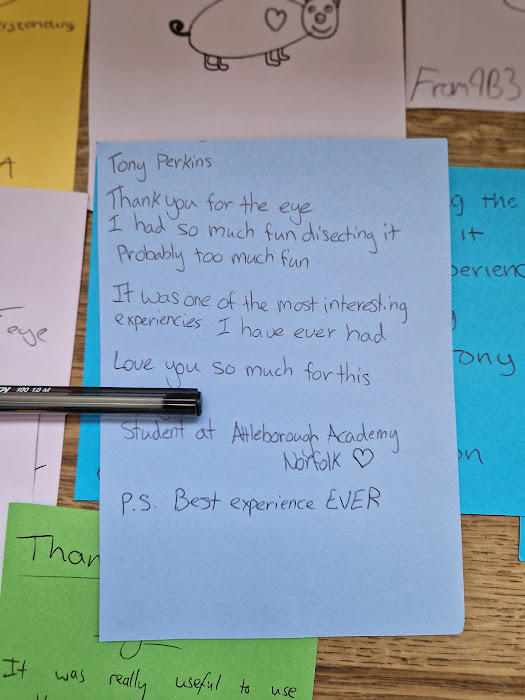 erstanding
From 9B3
Tony Perkins
Thank you for the eye
I had so much fun disecting it
Probably too much fun
It was one of the most interesting
experiencies I have ever had
Love you so much for this
Student at Attleborough Academy
Norfolk ♡
P.S. Best experience EVER
g the
it
perienc
Tony
on
eye
100 1.0 M
Than
It was really useful to use